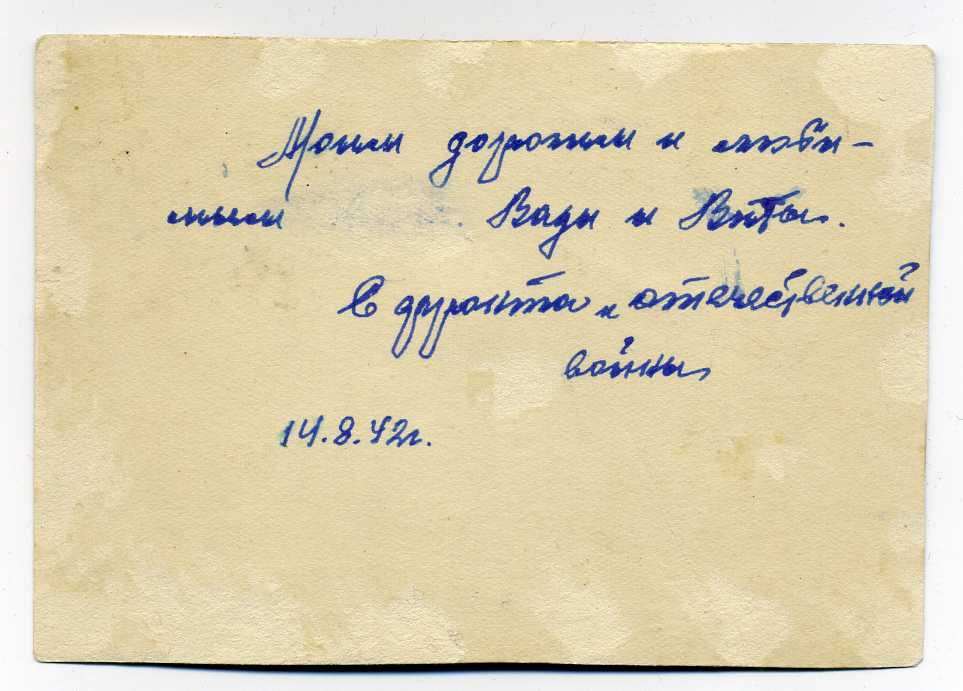 Моим дорогим и люби-
мым Вады и Виты.
С фронта и отечественной
войны
14.8.42г.